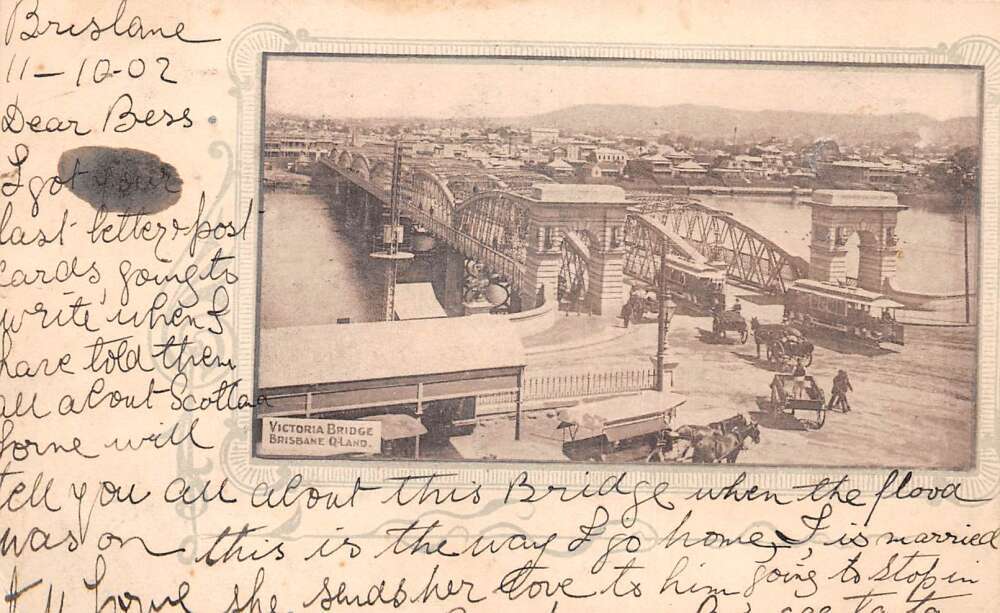 Brisbane
11-10-02
Dear Bess.
I got your
last letter & post
cards, going to
write when I
have told them
all about
will
tell you all about this Bridge when the flood
was on this is the way I go home, is married
she sends her love to him going to stop in
VICTORIA BRIDGE
BRISBANE Q-LAND.